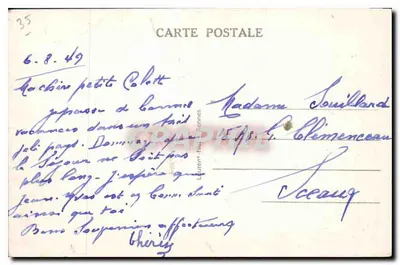 35
CARTE POSTALE
6.8.49
Ma chère petite Colett
je passe de bonnes
vacances dans un trés
joli pays. Dommage que
le séjour ne soit pas
plus long. J'espère que
Jean-Yves est en bonn santé
ainsi que toi.
Bons Souvenirs affectueux
Madame Souillard
Clémenceau
Sceaux